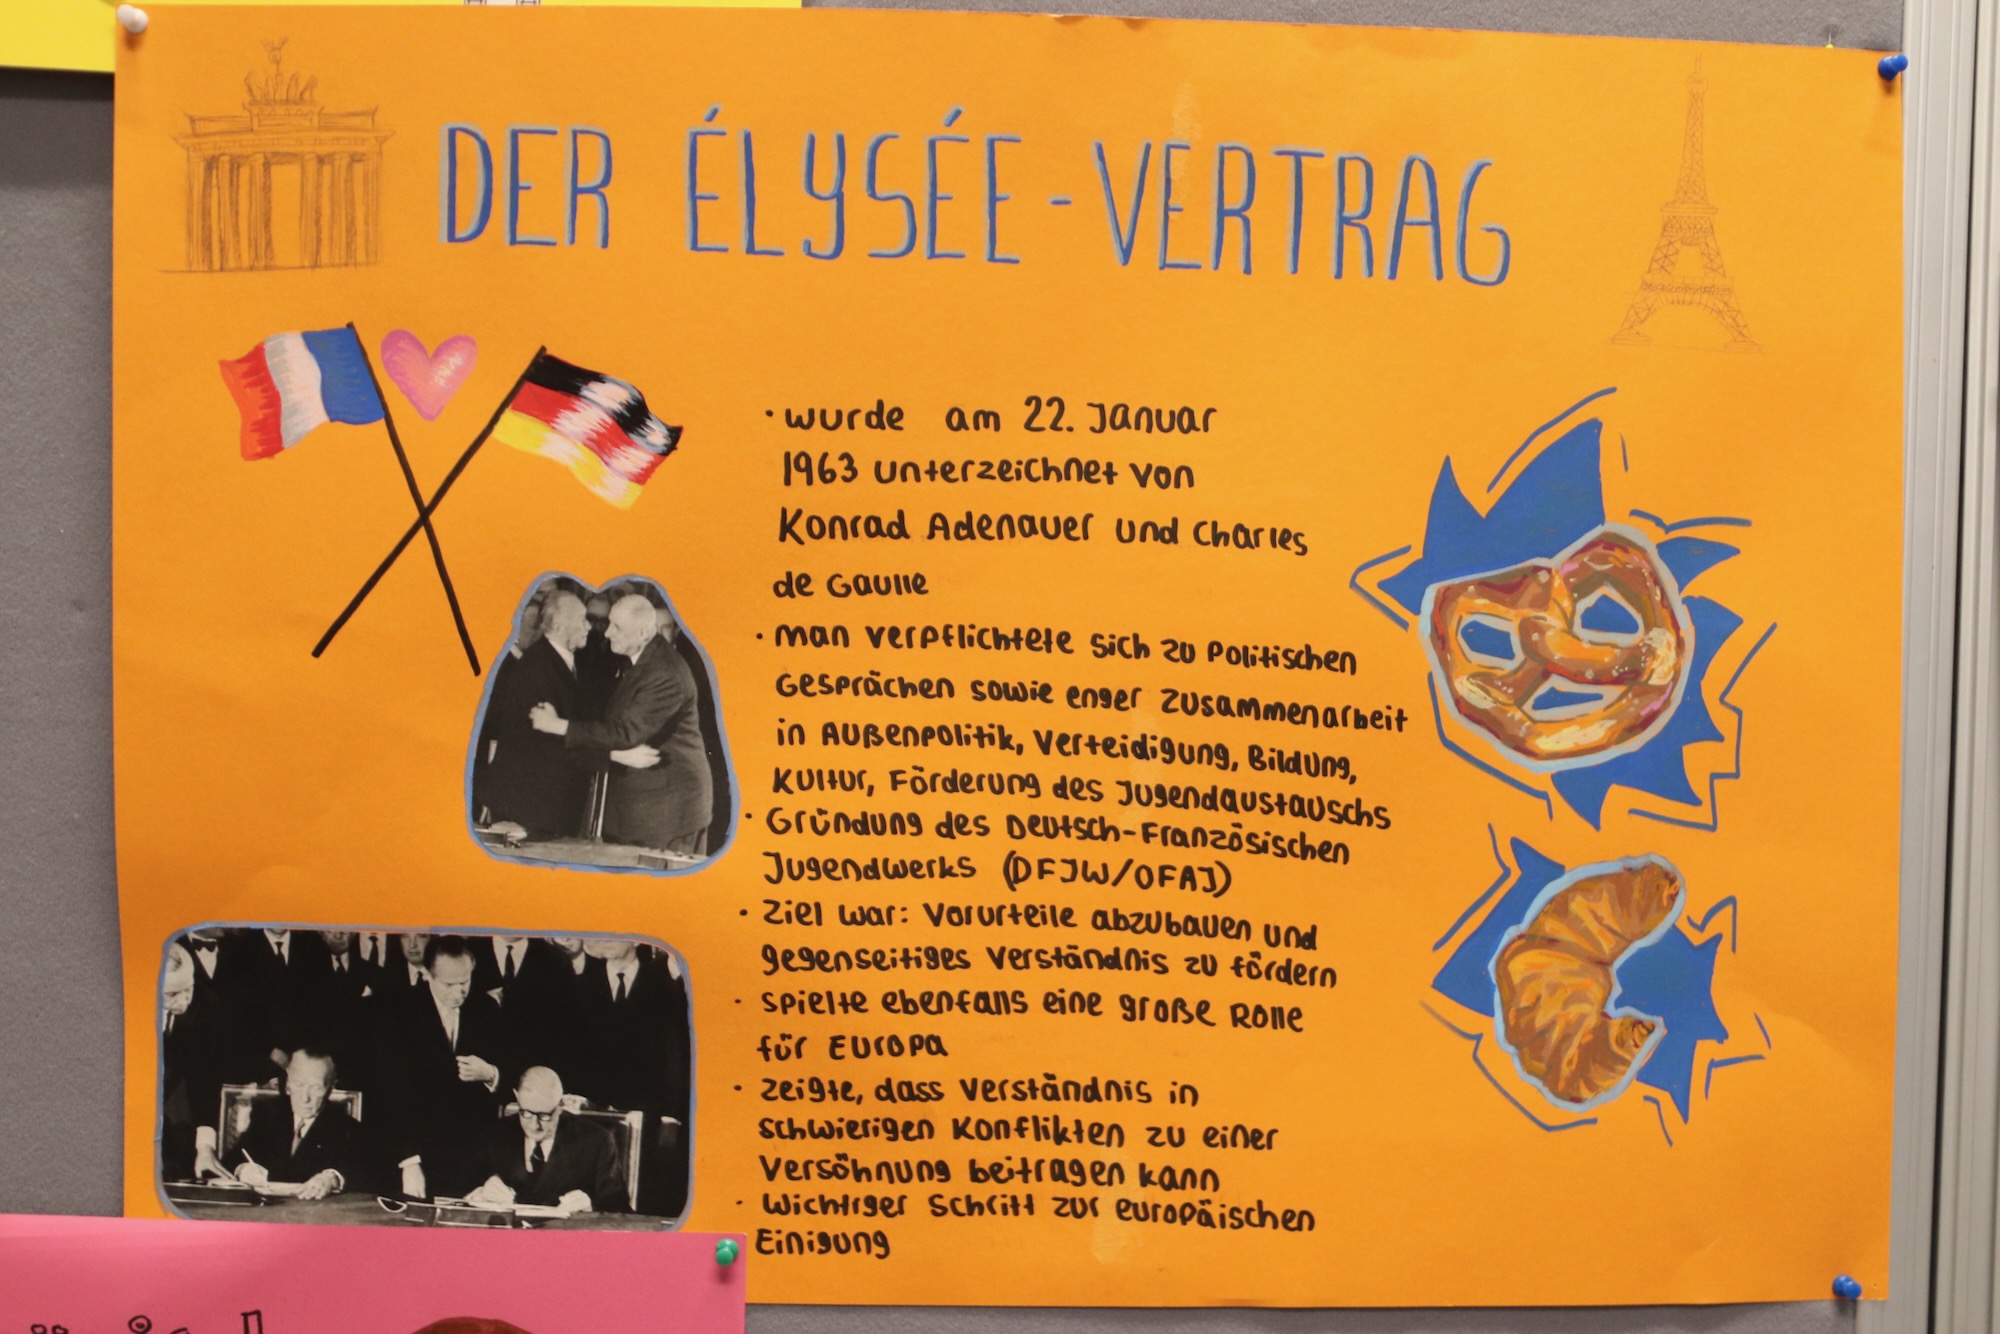 DER ÉLYSÉE-VERTRAG
• wurde am 22. Januar
1963 unterzeichnet von
Konrad Adenauer und Charles
de Gaulle
• man verpflichtete sich zu Politischen
Gesprächen sowie enger Zusammenarbeit
in Außenpolitik, Verteidigung, Bildung,
Kultur, Förderung des Jugendaustauschs
• Gründung des Deutsch-Französischen
Jugendwerks (DFJW/OFAJ)
• Ziel war: Vorurteile abzubauen und
gegenseitiges Verständnis zu fördern
• spielte ebenfalls eine große Rolle
für Europa
• zeigte, dass Verständnis in
schwierigen Konflikten zu einer
Versöhnung beitragen kann
• Wichtiger Schritt zur europäischen
Einigung